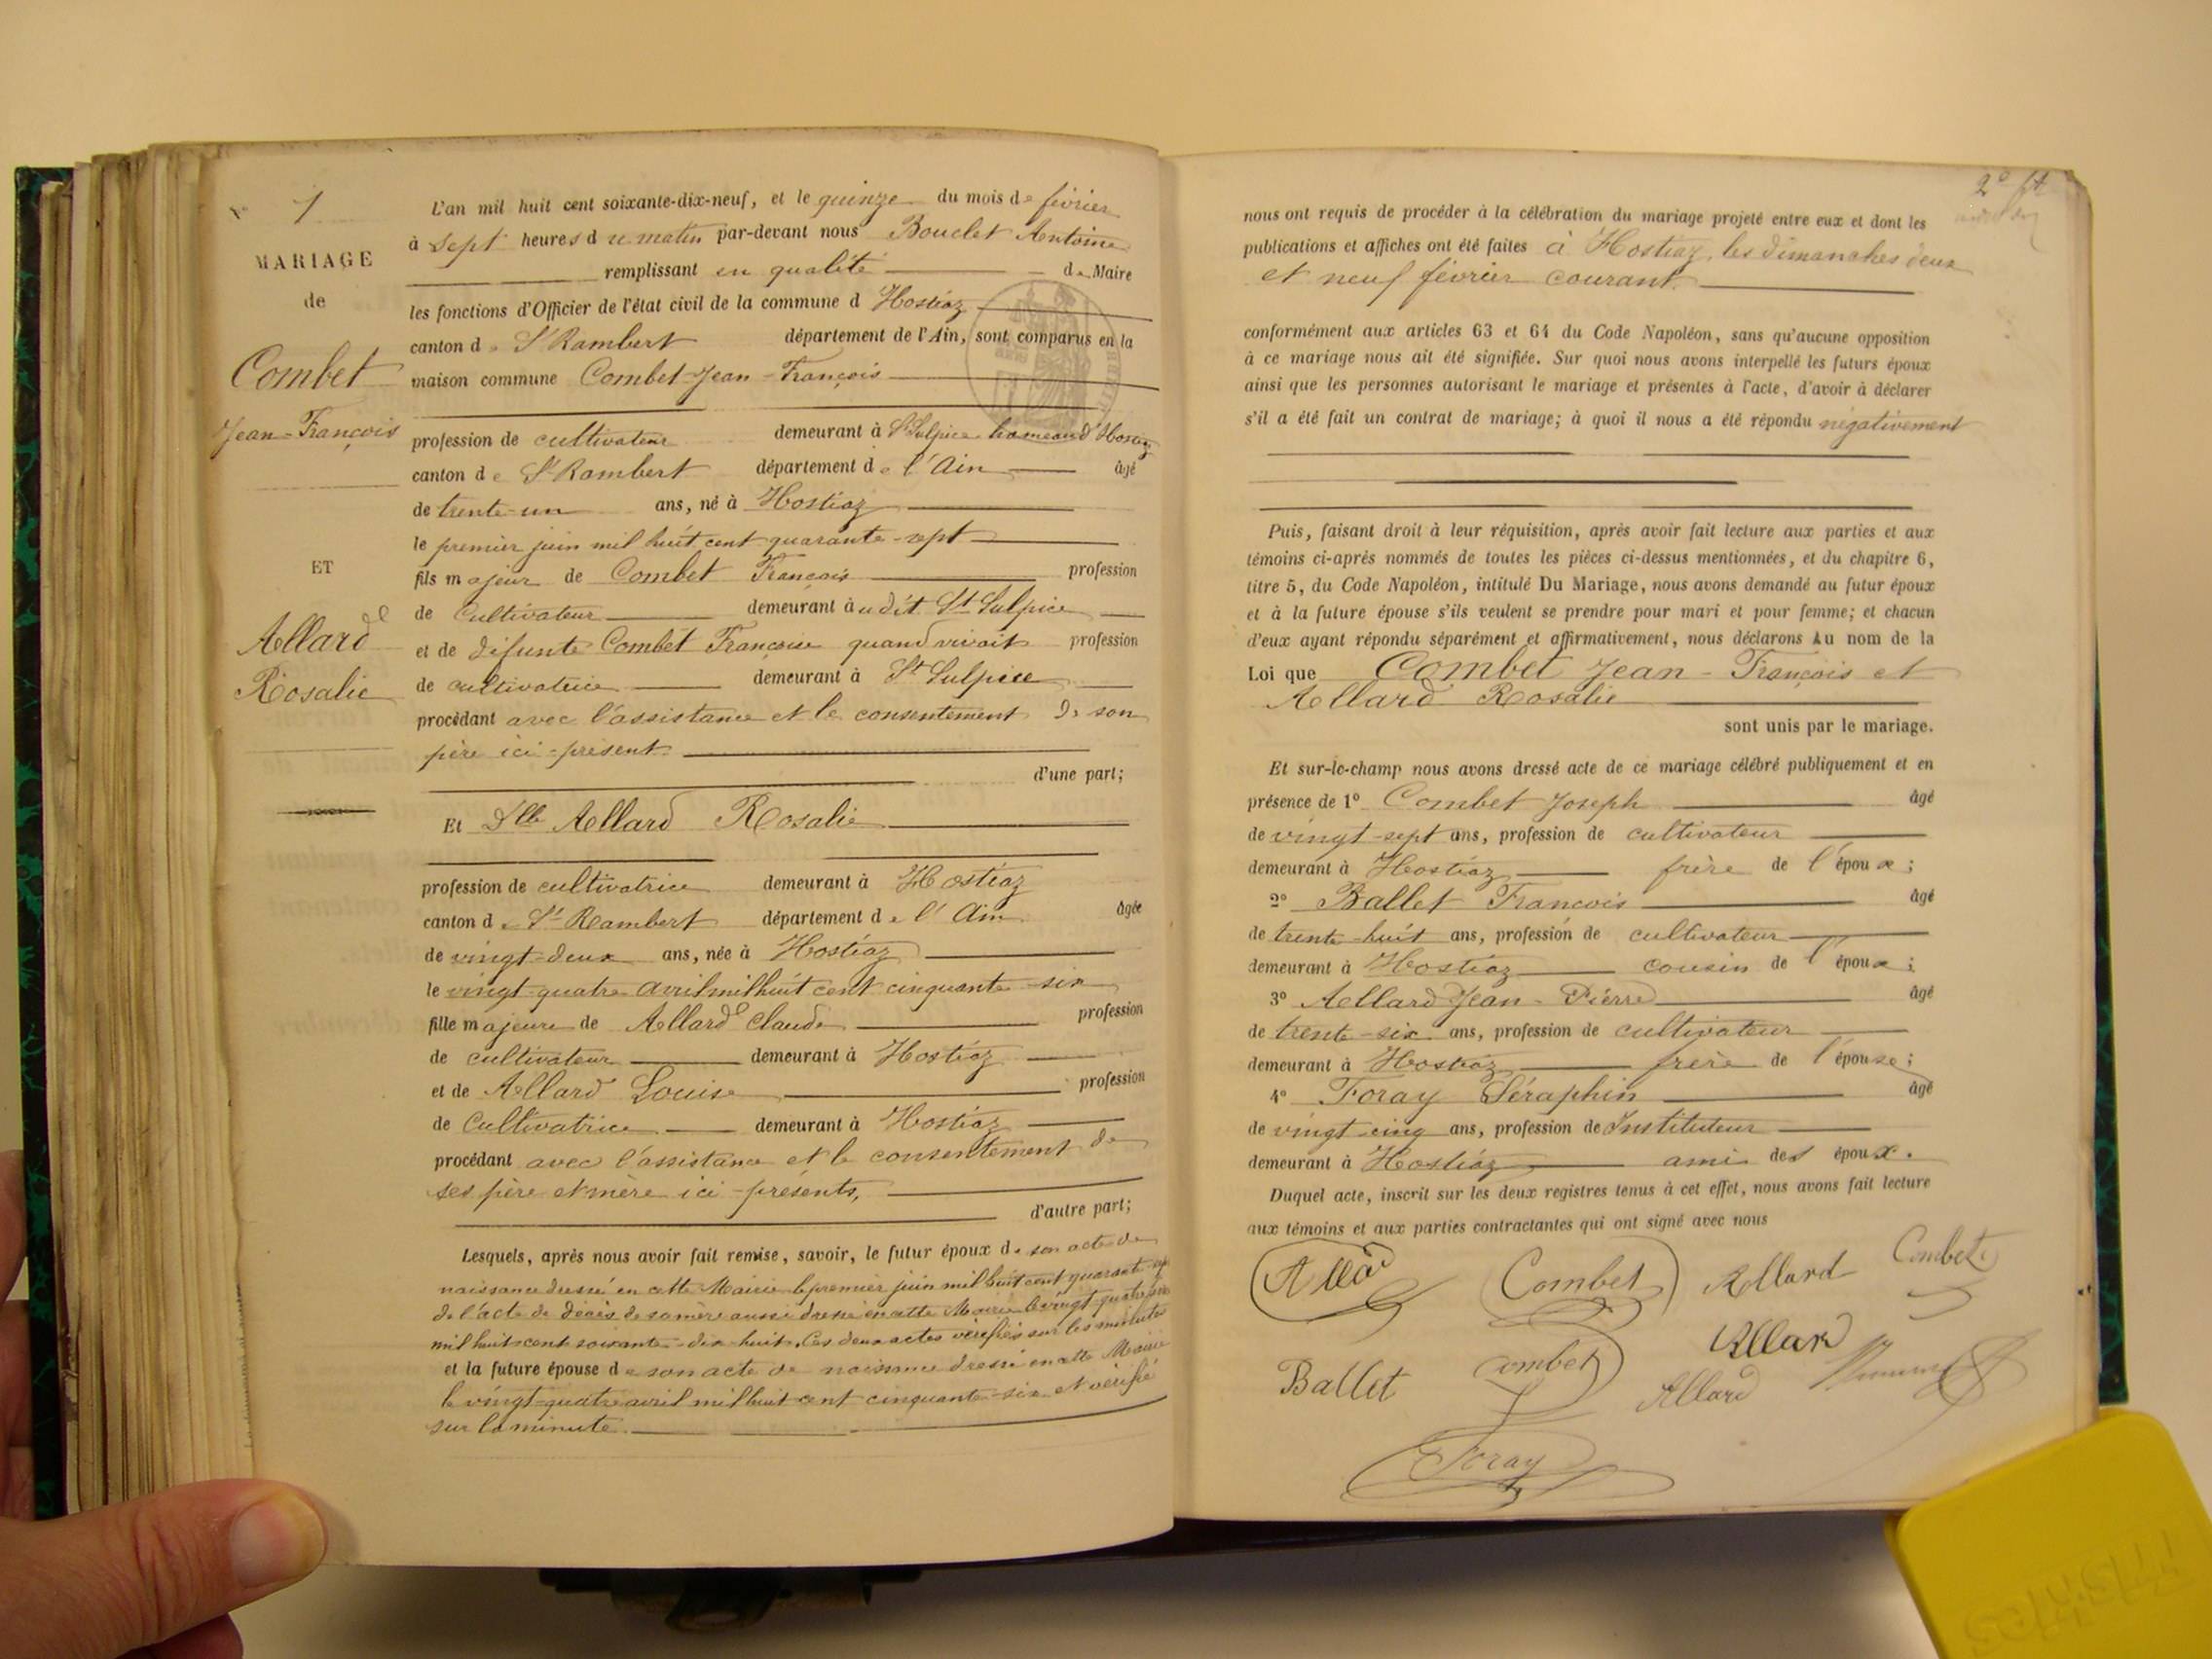 N° 1
MARIAGE
de
Combet
Jean-François
ET
Allard
Rosalie
L'an mil huit cent soixante-dix-neuf, et le quinze du mois de février
à sept heures du matin par-devant nous Bouclet Antoine
remplissant en qualité de Maire
les fonctions d'Officier de l'état civil de la commune d Hostiaz
canton de St Rambert département de l'Ain, sont comparus en la
maison commune Combet Jean-François
profession de cultivateur demeurant à St Sulpice hameau d'Hostiaz
canton de St Rambert département de l'Ain âgé
de trente-un ans, né à Hostiaz
le premier juin mil huit cent quarante-sept
fils majeur de Combet François profession
de Cultivateur demeurant audit St Sulpice
et de défunte Combet Françoise quand vivait profession
de cultivatrice demeurant à St Sulpice
procédant avec l'assistance et le consentement de son
père ici-présent
d'une part;
Et Dlle Allard Rosalie
profession de cultivatrice demeurant à Hostiaz
canton de St Rambert département de l'Ain âgée
de vingt-deux ans, née à Hostiaz
le vingt-quatre avril mil huit cent cinquante-six
fille majeure de Allard Claude profession
de cultivateur demeurant à Hostiaz
et de Allard Louise profession
de Cultivatrice demeurant à Hostiaz
procédant avec l'assistance et le consentement de
ses père et mère ici-présents,
d'autre part;
Lesquels, après nous avoir fait remise, savoir, le futur époux de son acte de
naissance dressé en cette Mairie le premier juin mil huit cent quarante-sept
de l'acte de décès de sa mère aussi dressé en cette Mairie le vingt quatre
mil huit cent soixante-dix-huit. Ces deux actes vérifiés sur les minutes
et la future épouse de son acte de naissance dressé en cette Mairie
le vingt-quatre avril mil huit cent cinquante-six et vérifié
sur la minute.
2e ft
nous ont requis de procéder à la célébration du mariage projeté entre eux et dont les
publications et affiches ont été faites à Hostiaz, les dimanches deux
et neuf février courant
conformément aux articles 63 et 64 du Code Napoléon, sans qu'aucune opposition
à ce mariage nous ait été signifiée. Sur quoi nous avons interpellé les futurs époux
ainsi que les personnes autorisant le mariage et présentes à l'acte, d'avoir à déclarer
s'il a été fait un contrat de mariage; à quoi il nous a été répondu négativement
Puis, faisant droit à leur réquisition, après avoir fait lecture aux parties et aux
témoins ci-après nommés de toutes les pièces ci-dessus mentionnées, et du chapitre 6,
titre 5, du Code Napoléon, intitulé Du Mariage, nous avons demandé au futur époux
et à la future épouse s'ils veulent se prendre pour mari et pour femme; et chacun
d'eux ayant répondu séparément et affirmativement, nous déclarons Au nom de la
Loi que Combet Jean-François et
Allard Rosalie
sont unis par le mariage.
Et sur-le-champ nous avons dressé acte de ce mariage célébré publiquement et en
présence de 1° Combet Joseph âgé
de vingt-sept ans, profession de cultivateur
demeurant à Hostiaz frère de l'époux;
2° Ballet François âgé
de trente-huit ans, profession de cultivateur
demeurant à Hostiaz cousin de l'époux;
3° Allard Jean-Pierre âgé
de trente-six ans, profession de cultivateur
demeurant à Hostiaz frère de l'épouse;
4° Foray Séraphin âgé
de vingt cinq ans, profession de Instituteur
demeurant à Hostiaz ami des époux.
Duquel acte, inscrit sur les deux registres tenus à cet effet, nous avons fait lecture
aux témoins et aux parties contractantes qui ont signé avec nous
Allard Combet Allard Combet
Ballet Combet Allard
Allard
Foray